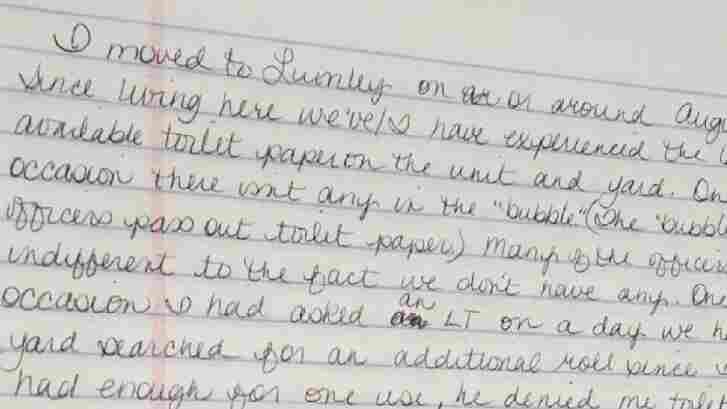 I moved to Lumley on or around Augu
since living here we've/I have experienced the
available toilet paper on the unit and yard. On
occasion there isnt any in the "bubble" (The "bubble
officers pass out toilet paper) Many of the officers
indifferent to the fact we don't have any. On
occasion I had asked an LT on a day we h
yard searched for an additional roll since
had enough for one use, he denied me toilet